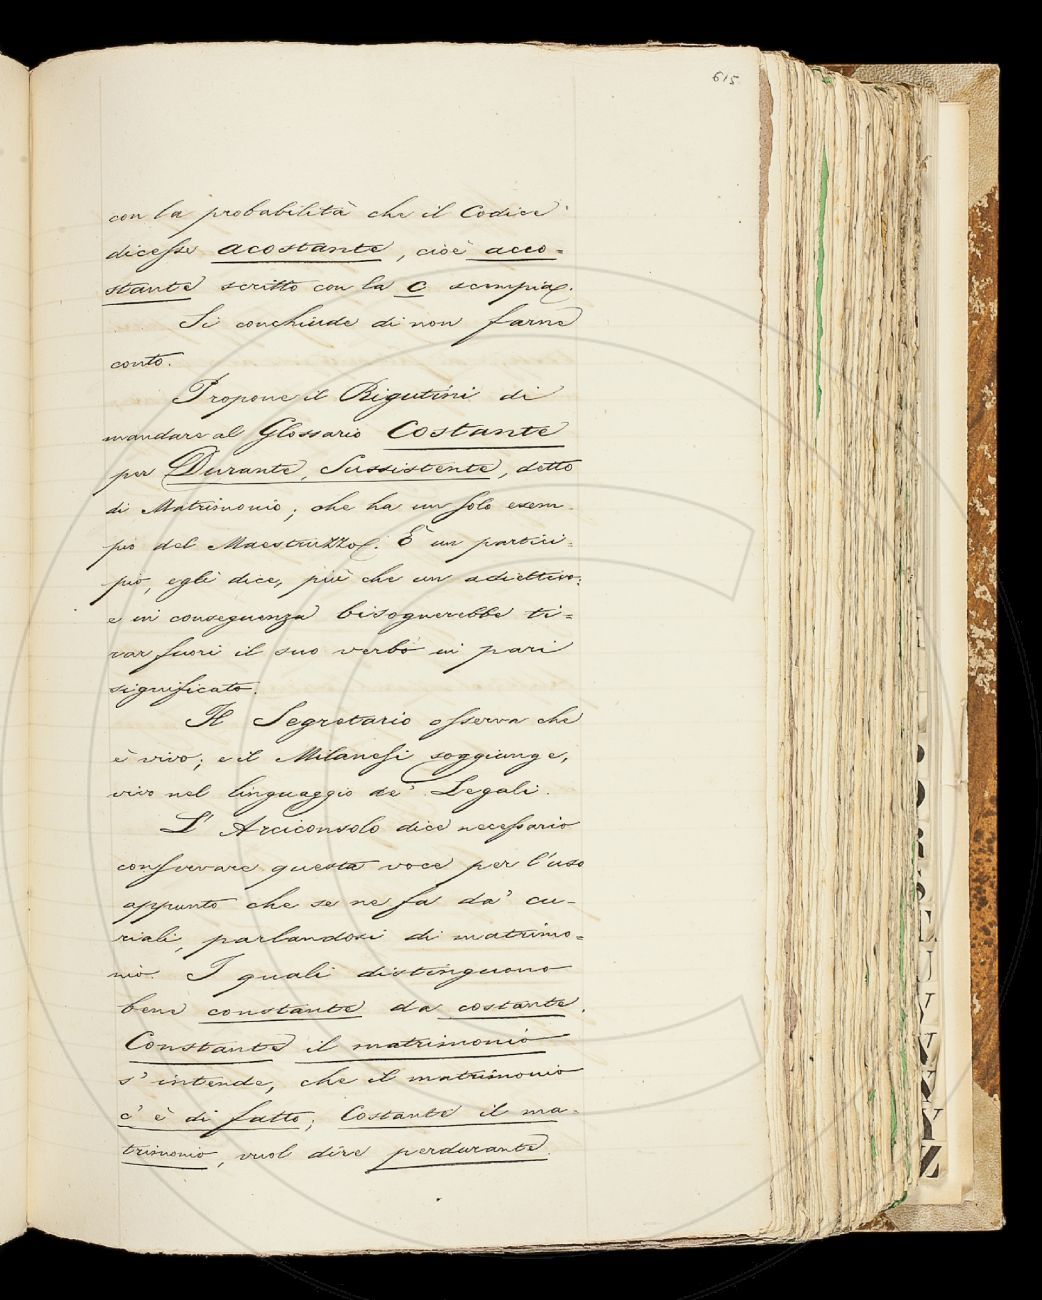 615
con la probabilità che il Codice
dicesse acostante, cioè acco=
stante scritto con la c scempia.
Si conchiude di non farne
conto.
Propone il Rigutini di
mandare al Glossario Costante
per Durante, Sussistente, detto
di Matrimonio; che ha un solo esem
pio del Maestruzzo. È un partici=
pio, egli dice, più che un adiettivo:
e in conseguenza bisognerebbe ti=
rar fuori il suo verbo in pari
significato.
Il Segretario osserva che
è vivo; e il Milanesi soggiunge,
vivo nel linguaggio de' Legali.
L'Arciconsolo dice necessario
conservare questa voce per l'uso
appunto che se ne fa da' cu-
riali, parlandosi di matrimo=
nio. I quali distinguono
bene constante da costante.
Constante il matrimonio
s'intende, che il matrimonio
c'è di fatto; Costante il ma-
trimonio, vuol dire perdurante.
D
R
S
T
U
V
X
Y
Z